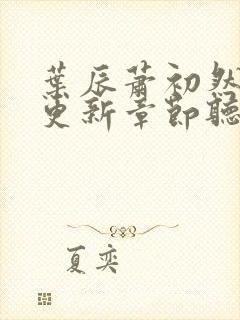 葉辰蕭初然
更新章節聽
夏奕